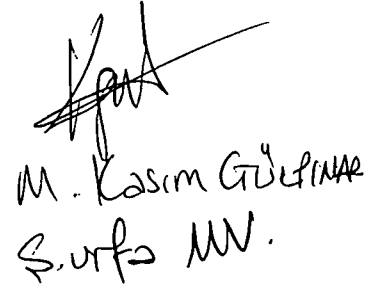 M. Kasım GÜLPINAR
Ş.urfa MV.